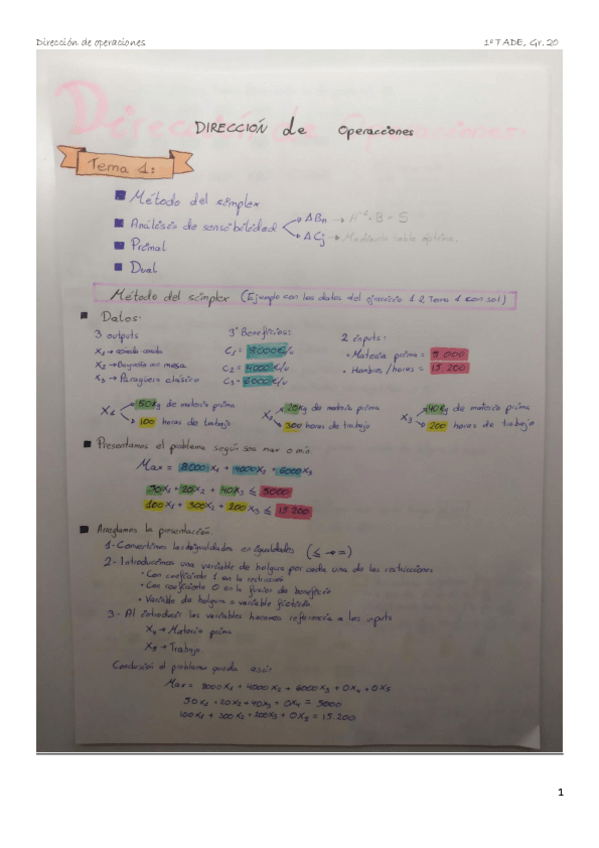 Dirección de operaciones 1º TADE, Gr. 20
Dirección de Operaciones
DIRECCIÓN de Operaciones
Tema 1:
Método del simplex
Análisis de sensibilidad → ΔBn → A⁻¹·B = S
→ ΔCj → Mediante tabla óptima.
Primal
Dual
Método del simplex (Ejemplo con los datos del ejercicio 1.2, Tema 1 con sol)
Datos:
3 outputs 3 Beneficios: 2 inputs:
X1 → C1 = 8000€/u • Materia prima = 5.000
X2 → mesa C2 = 4000€/u • Hombres/horas = 15.200
X3 → Paragüero clásico C3 = 6000€/u
X1 → 50Kg de materia prima X2 → 20Kg de materia prima X3 → 40Kg de materia prima
→ 100 horas de trabajo → 300 horas de trabajo → 200 horas de trabajo
Presentamos el problema según sea max o min
Max = 8000X1 + 4000X2 + 6000X3
50X1 + 20X2 + 40X3 ≤ 5000
100X1 + 300X2 + 200X3 ≤ 15.200
Arreglamos la presentación.
1- Convertimos las desigualdades en igualdades (≤ → =)
2- Introducimos una variable de holgura por cada una de las restricciones
• Con coeficiente 1 en la restricción
• Con coeficiente 0 en la función de beneficio
• Variable de holgura = variable ficticia
3- Al introducir las variables hacemos referencia a los inputs
X4 → Materia prima
X5 → Trabajo.
Conclusión el problema queda así:
Max = 8000X1 + 4000X2 + 6000X3 + 0X4 + 0X5
50X1 + 20X2 + 40X3 + 0X4 = 5000
100X1 + 300X2 + 200X3 + 0X5 = 15.200
1